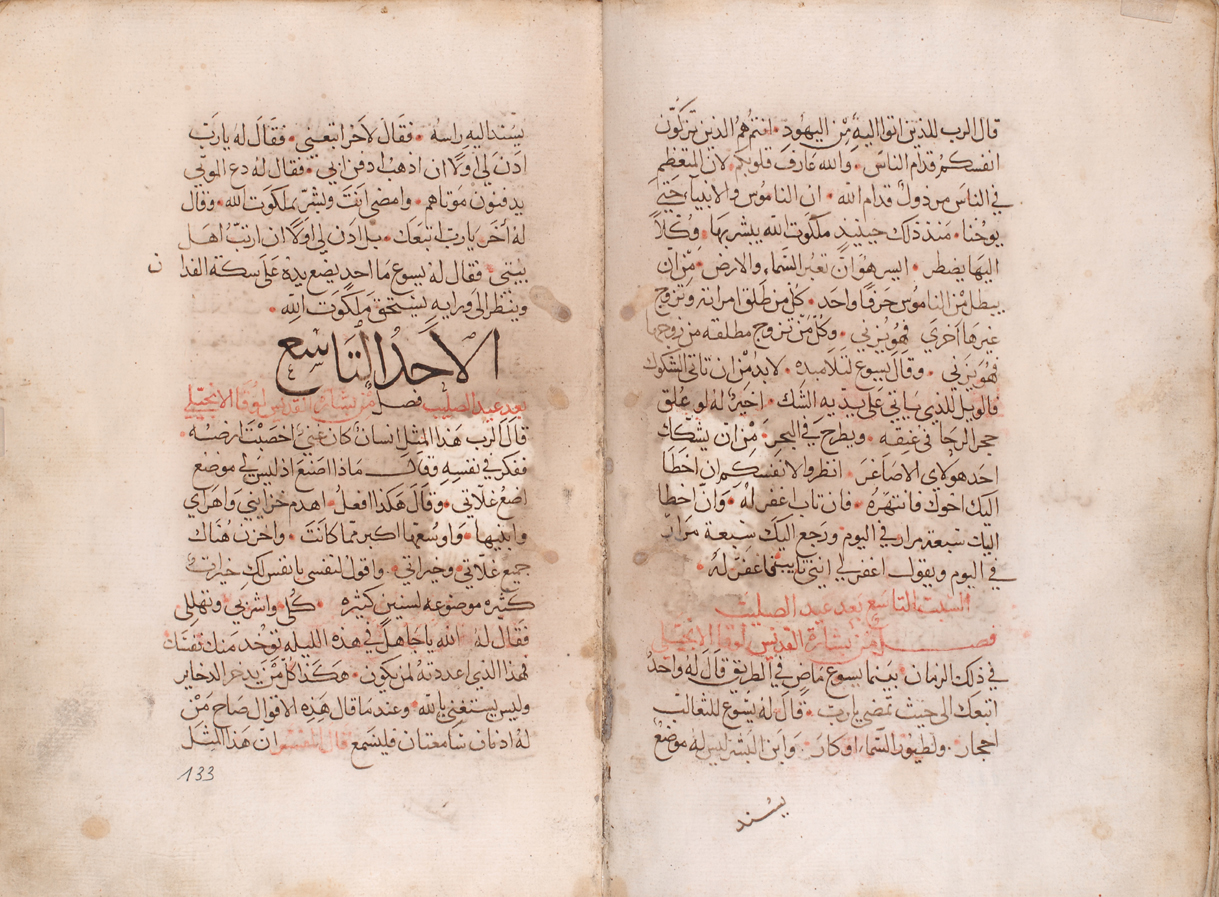 قال الرب للذين اتوا اليه من اليهود • انتم هم الذين تزكون
انفسكم قدام الناس • والله عارف قلوبكم • لان المتعظم
في الناس مرذول قدام الله • ان الناموس والانبياء حتى
يوحنا • منذ ذلك حينيذ ملكوت الله يبشر بها • وكلاً
اليها يضطر • اليس هو ان تعبر السماء والارض • من ان
يبطل من الناموس حرفا واحد • كل من طلق امراته وتزوج
غيرها اخري فهو يزني • وكل من تزوج مطلقه من زوجها
فهو يزني • وقال يسوع لتلاميده • لابد من ان تاتي الشكوك
فالويل للذي ياتي على يديه الشك • اخير له لو علق
حجر الرحا في عنقه • ويطرح في البحر • من ان يشكك
احد هولاي الاصاغر • انظروا لانفسكم ان اخطا
اليك اخوك فانتهره • فان تاب اغفر له • وان اخطا
اليك سبعة مرار في اليوم ورجع اليك سبعة مرار
في اليوم ويقول اغفر لي انني تايب فاغفر له •
السبت التاسع بعد عيد الصليب
فصل من بشارة القديس لوقا الانجيلي
في ذلك الزمان بينما يسوع ماض في الطريق قال له واحد
اتبعك الى حيث تمضي يارب • قال له يسوع للثعالب
احجار • ولطيور السماء اوكار • وابن البشر ليس له موضع
يسند
يسند اليه راسه • فقال لاخر اتبعني • فقال له يارب
ادن لي اولا ان اذهب ادفن ابي • فقال له دع الموتي
يدفنون موتاهم • وامضي انت وبشر بملكوت الله • وقال
له اخر يارب اتبعك • بل ادن لي اولا ان ارتب اهل
بيتي • فقال له يسوع ما احد يضع يده على سكة الفدان
وينظر الى ورايه يستحق ملكوت الله •
الاحد التاسع
بعد عيد الصليب فصل من بشارة القديس لوقا الانجيلي
قال الرب هذا المثل انسان كان غني اخصبت ارضه •
ففكر في نفسه وقال ماذا اصنع اذ ليس لي موضع
اضع غلاتي • وقال هكذا افعل • اهدم خزايني واهراي
وابنيها • واوسعها اكبر مما كانت • واخزن هناك
جميع غلاتي • وخيراتي • واقول لنفسي يا نفس لك خيرات
كثيره موضوعه لسنين كثيره • كلي واشربي وتهللي
فقال له الله يا جاهل في هذه الليله توخد منك نفسك
فهذا الذي اعددته لمن يكون • هكذا كل من يدخر الدخاير
وليس يستغني بالله • وعند ما قال هذه الاقوال صاح من
له اذنان سامعتان فليسمع قال المفسر ان هذا المثل
133